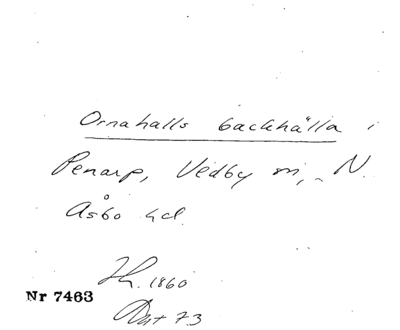 Ornahalls backhälla i
Penarp, Vedby sn, N.
Åsbo hd.
1860
Nr 7463
Dat 73